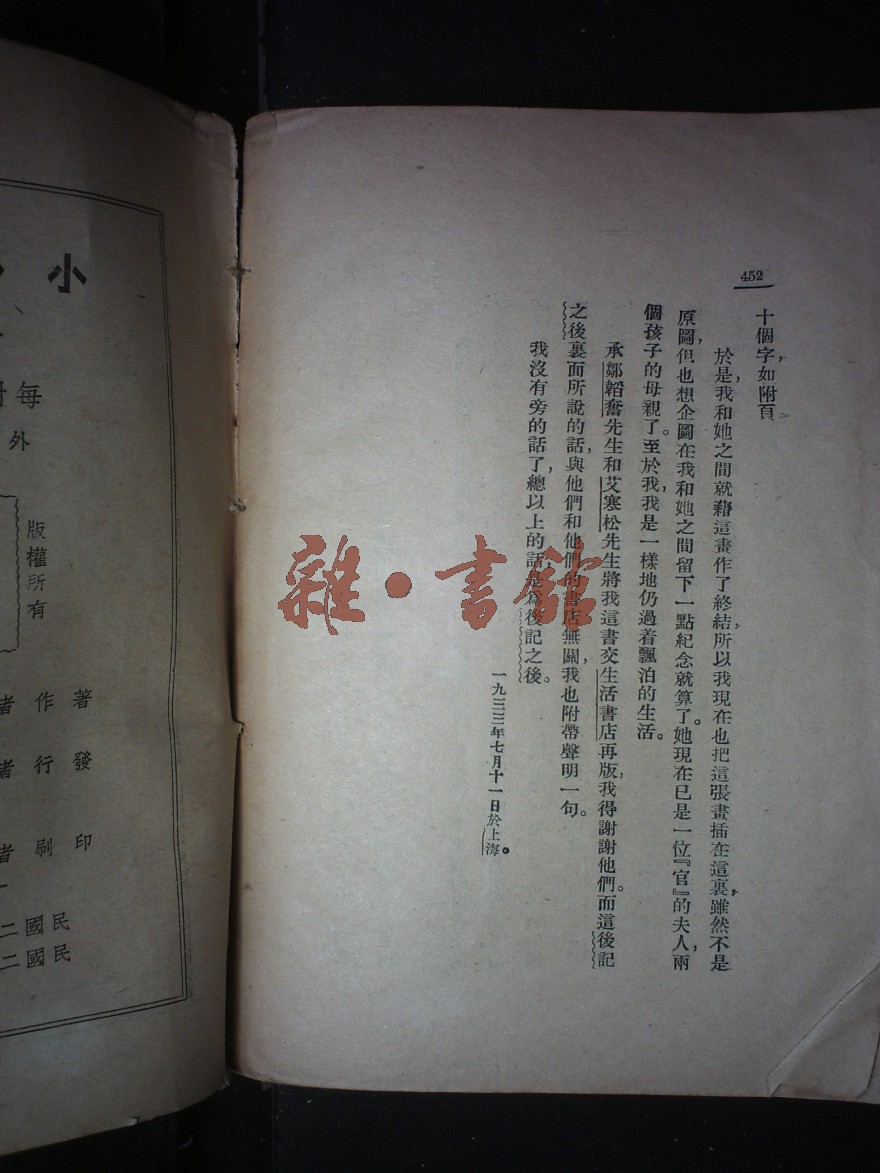 452
十個字，如附頁。
於是，我和她之間就藉這畫作了終結，所以我現在也把這張畫插在這裏，雖然不是
原圖，但也想企圖在我和她之間留下一點紀念就算了。她現在已是一位『官』的夫人，兩
個孩子的母親了。至於我，我是一樣地仍過着飄泊的生活。
承鄒韜奮先生和艾寒松先生將我這書交生活書店再版，我得謝謝他們。而這後記
之後裏面所說的話，與他們和他們的書店無關，我也附帶聲明一句。
我沒有旁的話了，總以上的話，是爲後記之後。
一九三三年七月十一日於上海。
雜·書館
小
每
外
版權所有
著作者
發行者
印刷者
民國二
民國二